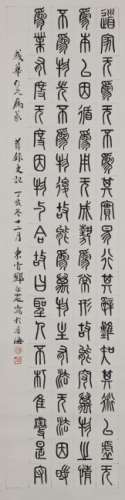 道家無為又曰無不為其實易行其辭難知其術以虛無
為本以因循為用無成埶無常形故能究萬物之情
不為物先不為物後故能為萬物主有法無法因時
為業有度無度因物與合故曰聖人不朽時變是守
成華仁兄屬篆 節錄史記 丁亥冬十二月 東官鄧 寫於香海